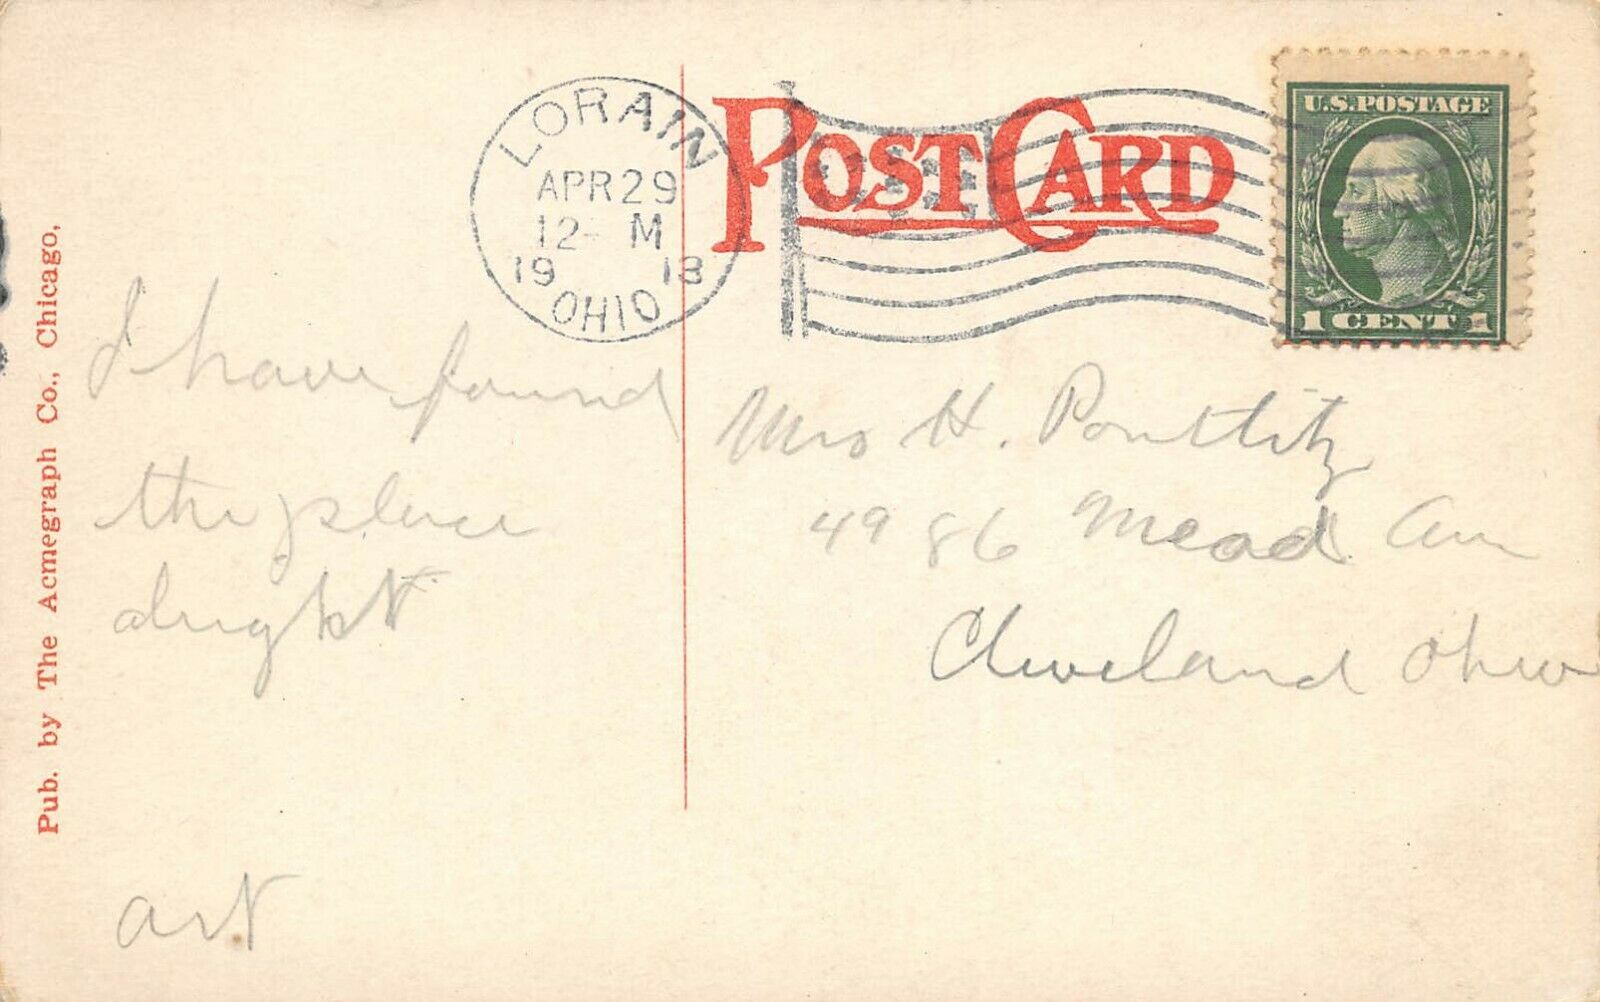 LORAIN
APR 29
12- M
19 13
OHIO
POST CARD
U.S. POSTAGE
1 CENT 1
Pub. by The Acmegraph Co., Chicago,
I have found
the place
alright
art
Mrs H.
4986 Mead Av
Cleveland Ohio